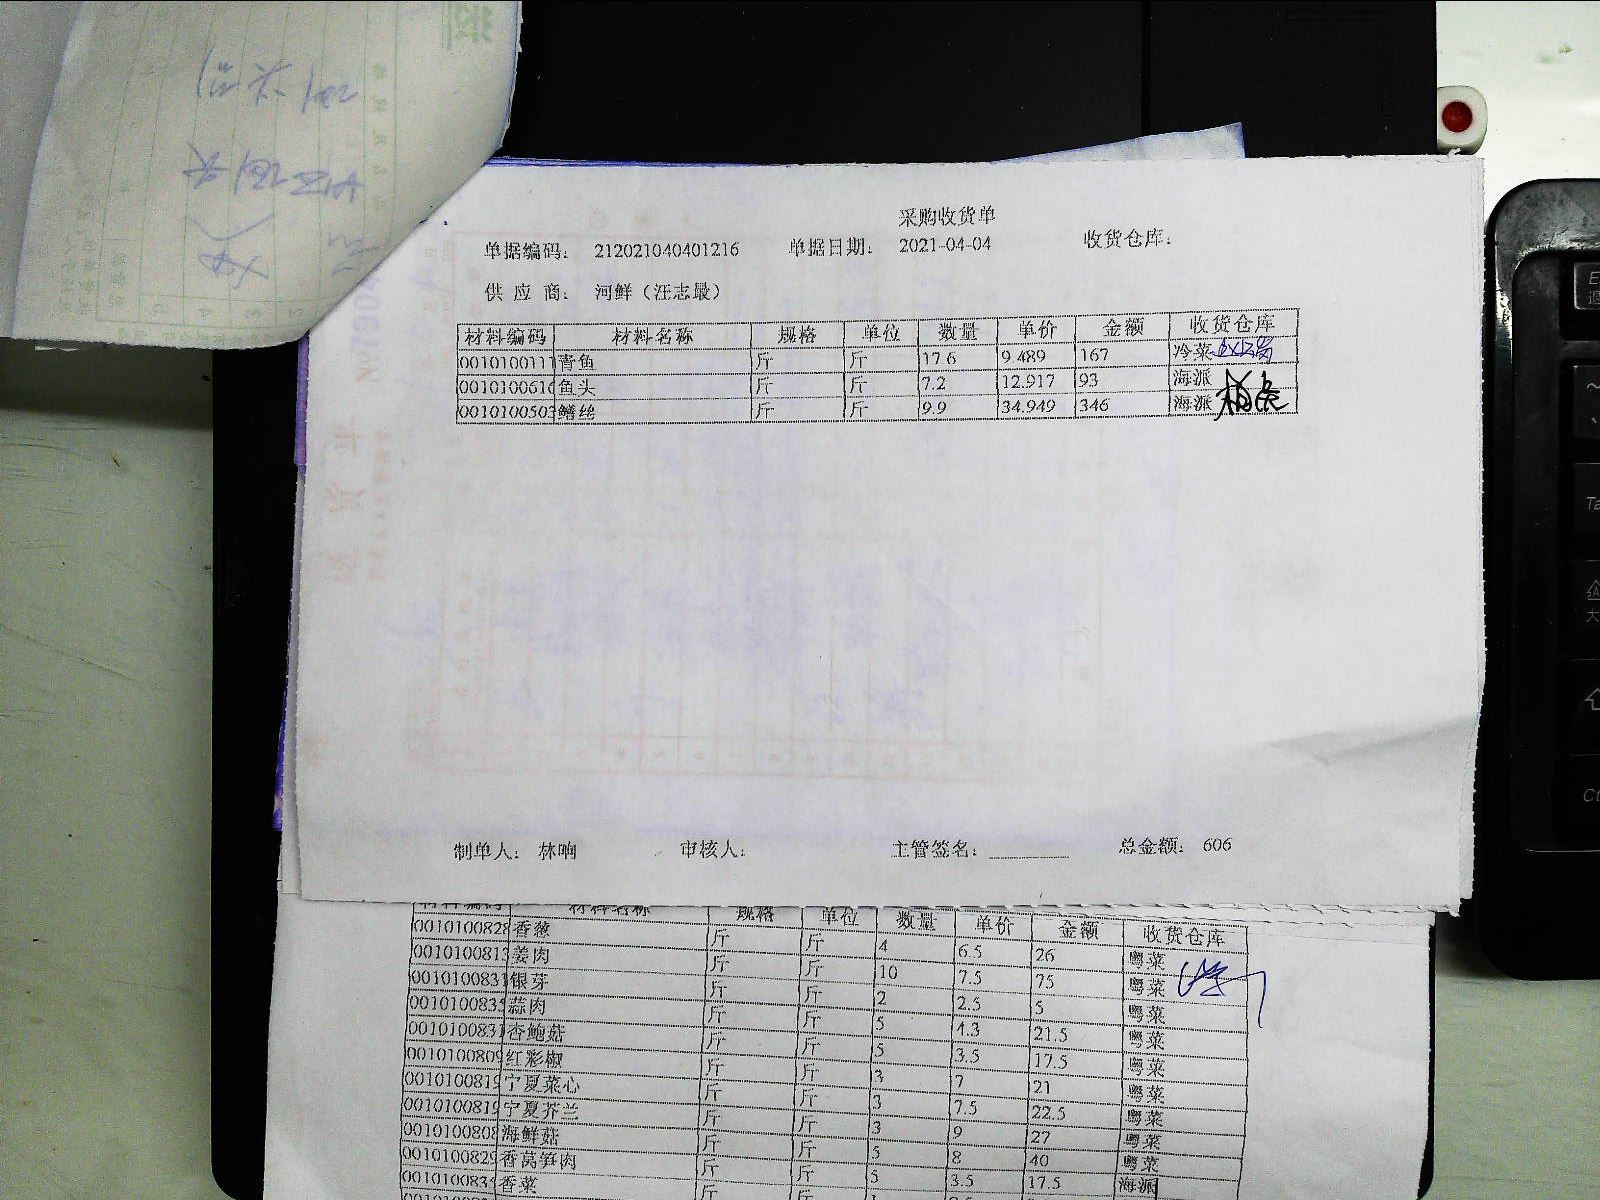 采购收货单
单据编码： 212021040401216 单据日期： 2021-04-04 收货仓库：
供 应 商： 河鲜（汪志最）
材料编码 材料名称 规格 单位 数量 单价 金额 收货仓库
0010100111 青鱼 斤 斤 17.6 9.489 167 冷菜
0010100616 鱼头 斤 斤 7.2 12.917 93 海派
0010100503 鳝丝 斤 斤 9.9 34.949 346 海派
制单人： 林响 审核人： 主管签名： 总金额： 606
材料编码 材料名称 规格 单位 数量 单价 金额 收货仓库
0010100828 香葱 斤 斤 4 6.5 26 粤菜
0010100813 姜肉 斤 斤 10 7.5 75 粤菜
001010083 银芽 斤 斤 2 2.5 5 粤菜
001010083 蒜肉 斤 斤 5 4.3 21.5 粤菜
001010083 杏鲍菇 斤 斤 5 3.5 17.5 粤菜
0010100809 红彩椒 斤 斤 3 7 21 粤菜
0010100819 宁夏菜心 斤 斤 3 7.5 22.5 粤菜
0010100819 宁夏芥兰 斤 斤 3 9 27 粤菜
0010100808 海鲜菇 斤 斤 5 8 40 粤菜
0010100829 香莴笋肉 斤 斤 5 3.5 17.5 海派
001010083 香菜 斤 斤